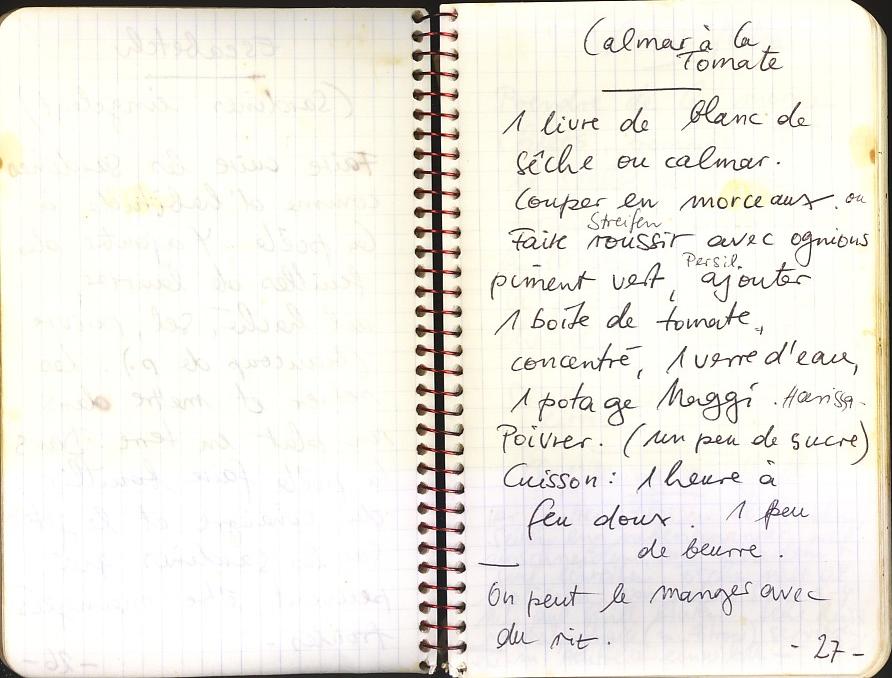 Calmar à la
Tomate
1 livre de blanc de
sêche ou calmar.
Couper en morceaux. ou
Streifen
Faite roussir avec ognions
Persil
piment vert, ajouter
1 boite de tomate,
concentré, 1 verre d'eau,
1 potage Maggi. Harissa.
Poivrer. (un peu de sucre)
Cuisson: 1 heure à
feu doux. 1 peu
de beurre.
On peut le manger avec
du riz.
- 27 -